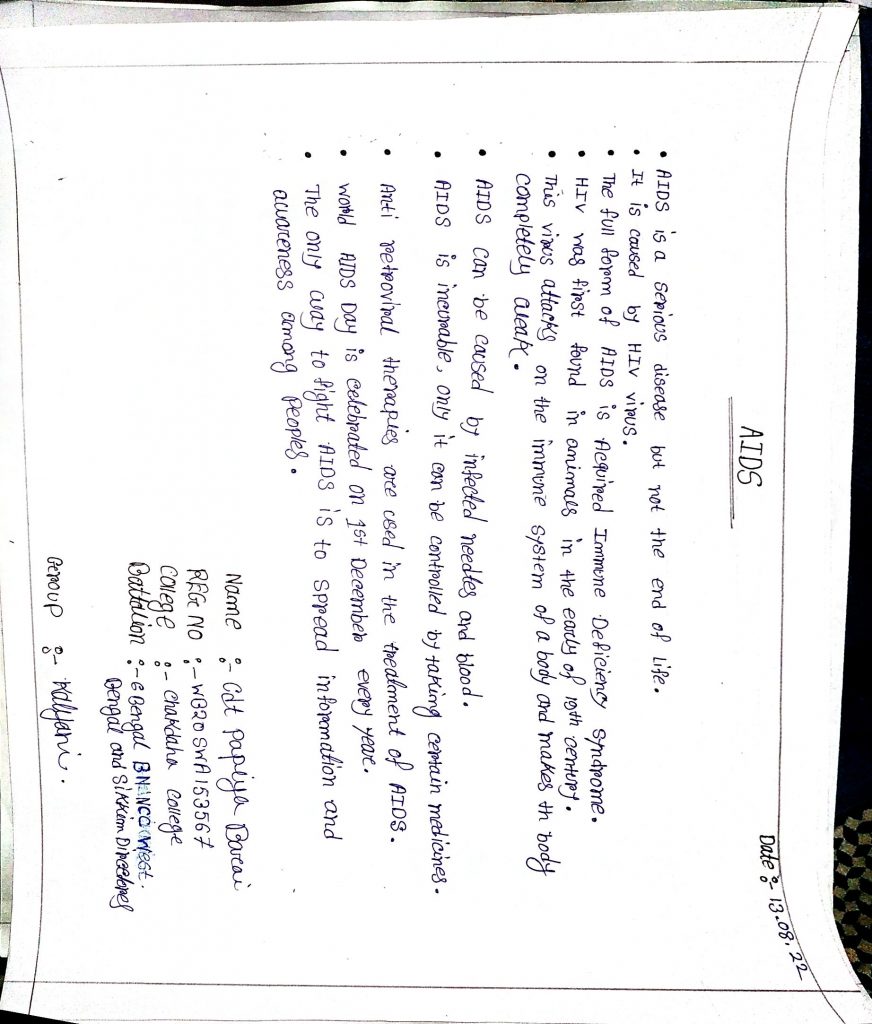 Date :- 13.08.22
AIDS
• AIDS is a serious disease but not the end of life.
• It is caused by HIV virus.
• The full form of AIDS is Acquired Immune Deficiency Syndrome.
• HIV was first found in animals in the early of 19th century.
• This virus attacks on the immune system of a body and makes th body
completely weak.
• AIDS can be caused by infected needles and blood.
• AIDS is incurable, only it can be controlled by taking certain medicines.
• Anti retroviral therapies are used in the treatment of AIDS.
• World AIDS Day is celebrated on 1st December every year.
• The only way to fight AIDS is to spread information and
awareness among peoples.
Name :- Cdt Papiya Barai
REG NO :- WB20SWA153567
College :- Chakdaha College
Battalion :- 6 Bengal BN NCC West.
Bengal and Sikkim
Group :- Kalyani.